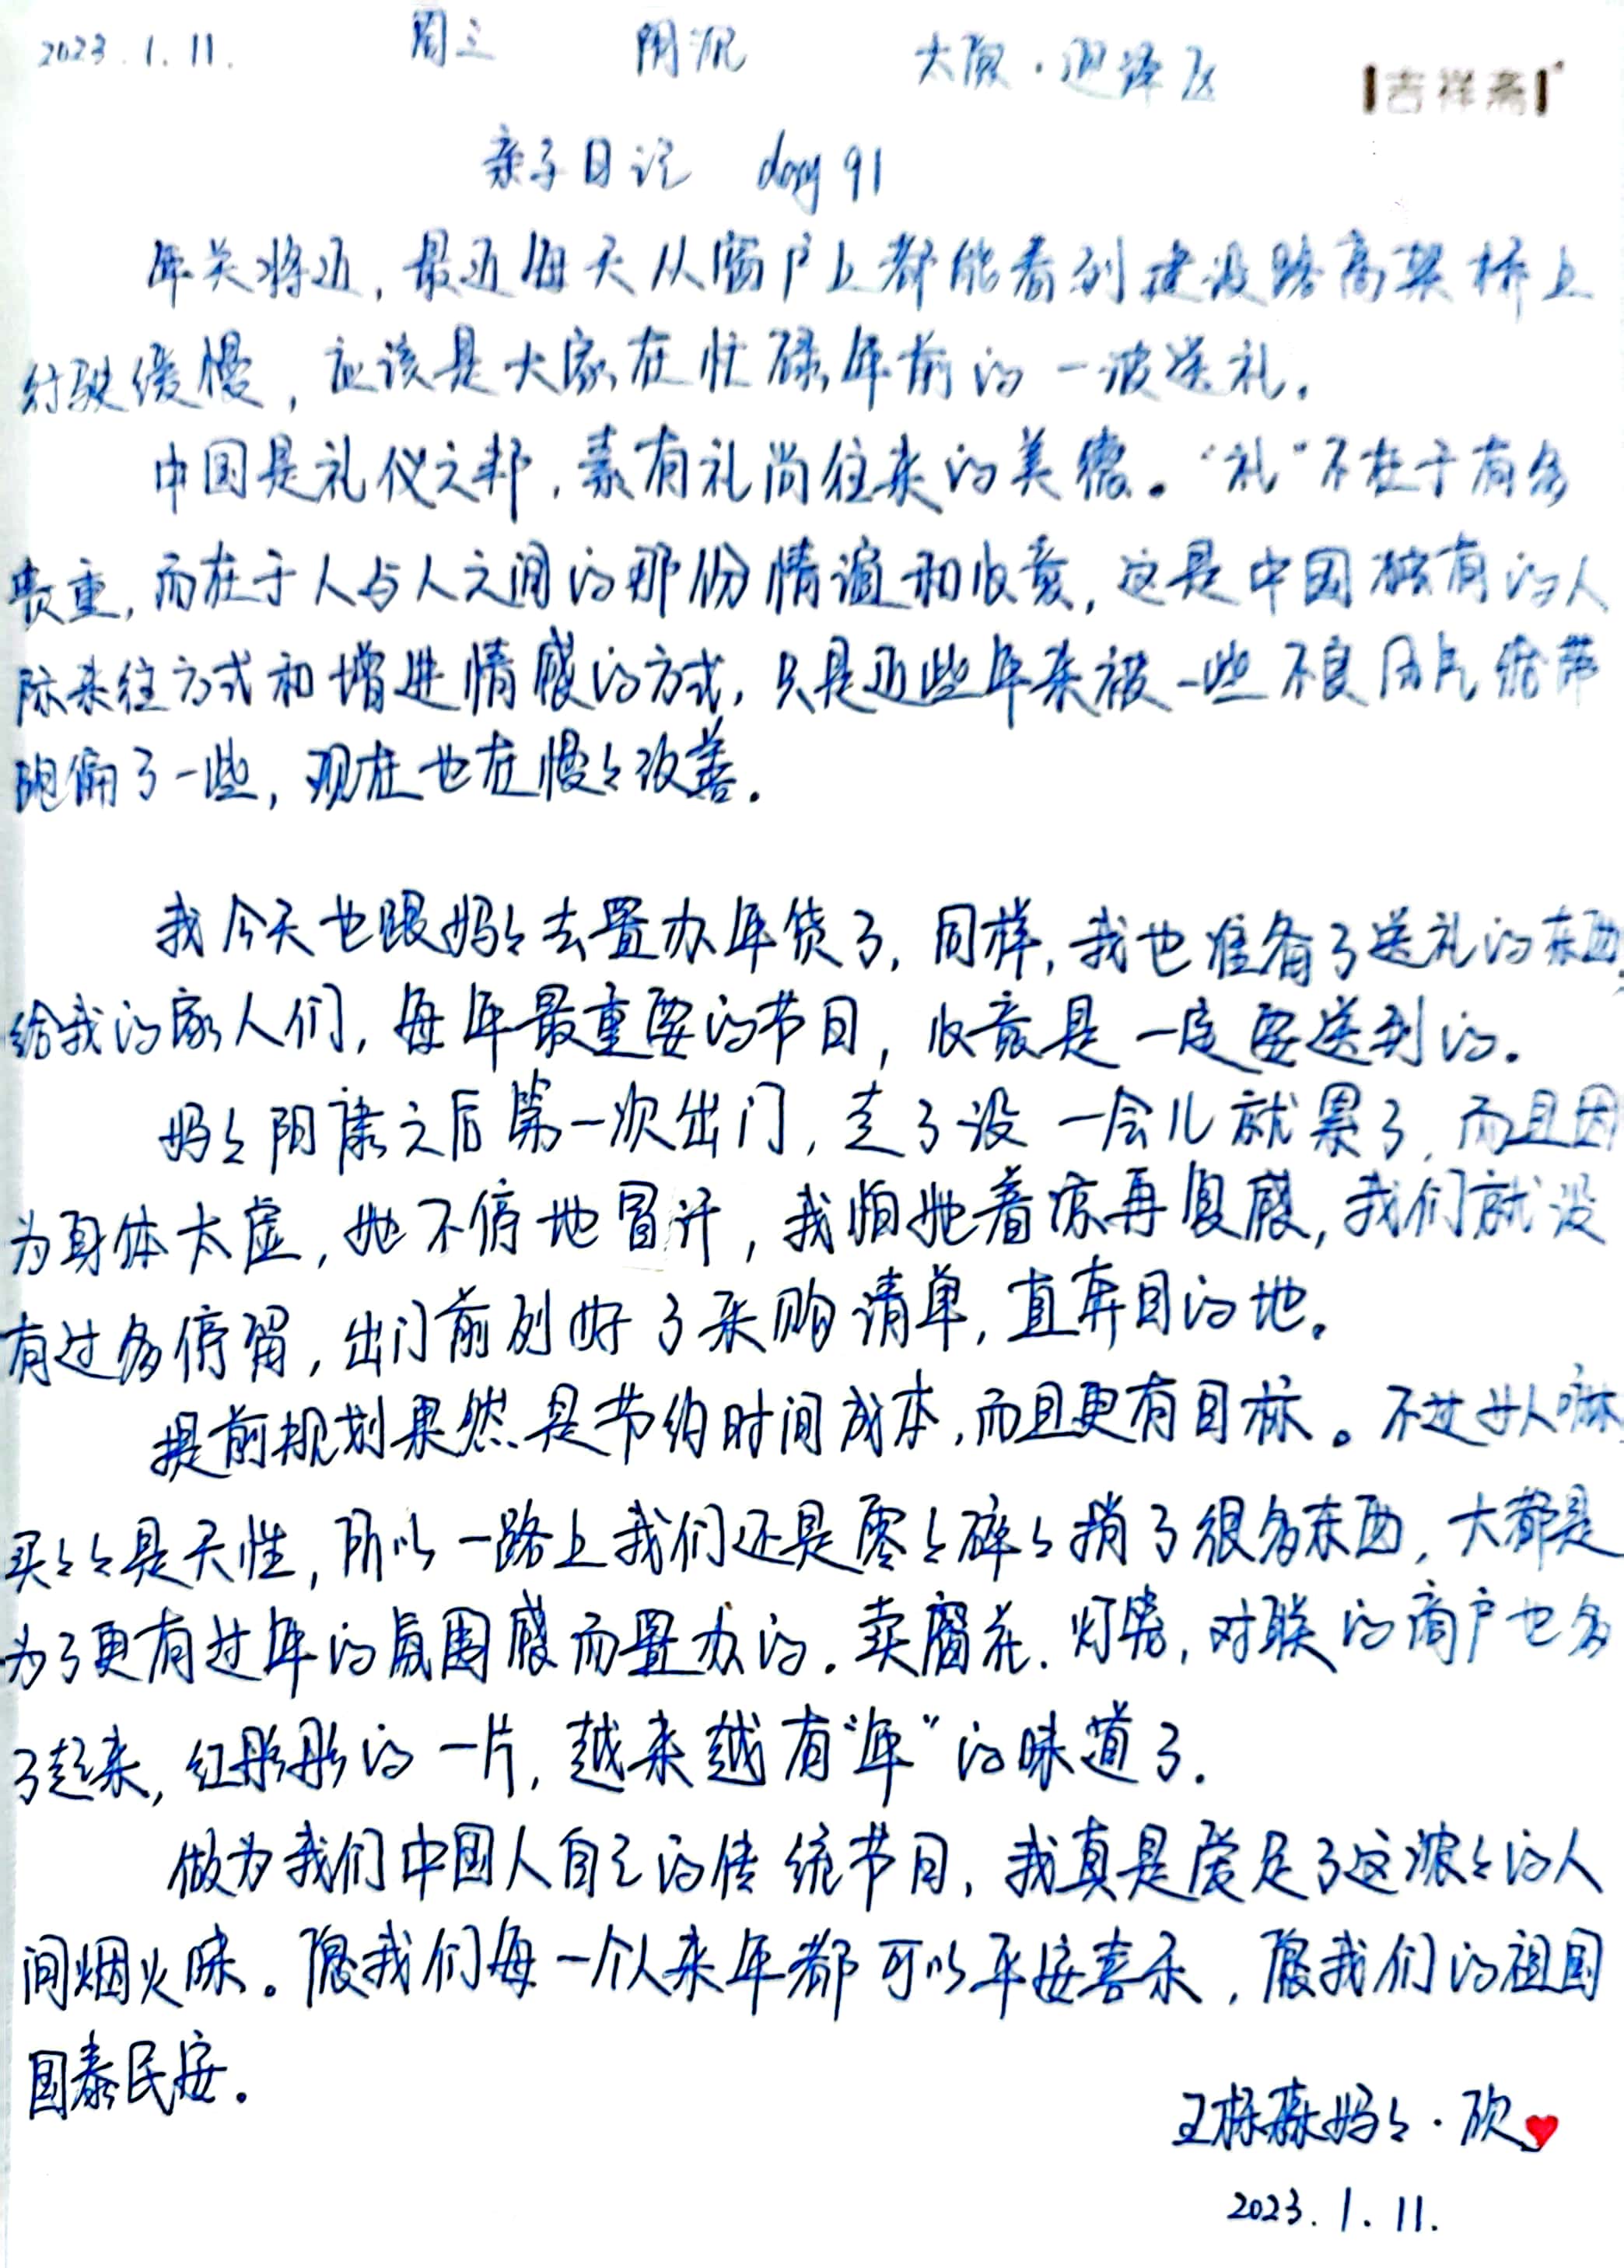 2023.1.11. 周三 阴沉 太原·迎泽区
吉祥斋
亲子日记 day 91
年关将近，最近每天从窗户上都能看到建设路高架桥上
行驶缓慢，应该是大家在忙碌年前的一波送礼。
中国是礼仪之邦，素有礼尚往来的美德。“礼”不在于有多
贵重，而在于人与人之间的那份情谊和心意，这是中国独有的人
际来往方式和增进情感的方式，只是近些年来被一些不良风气给带
跑偏了一些，现在也在慢々改善。
我今天也跟妈々去置办年货了，同样，我也准备了送礼的东西，
给我的家人们，每年最重要的节日，心意是一定要送到的。
妈々阳康之后第一次出门，走了没一会儿就累了，而且因
为身体太虚，她不停地冒汗，我怕她着凉再复感，我们就没
有过多停留，出门前列好了采购清单，直奔目的地。
提前规划果然是节约时间成本，而且更有目标。不过女人嘛
买々々是天性，所以一路上我们还是零々碎々捎了很多东西，大都是
为了更有过年的氛围感而置办的。卖窗花、灯笼，对联的商户也多
了起来，红彤彤的一片，越来越有“年”的味道了。
做为我们中国人自己的传统节日，我真是爱足了这浓々的人
间烟火味。愿我们每一个人来年都可以平安喜乐，愿我们的祖国
国泰民安。
王栎森妈々·欣❤
2023.1.11.